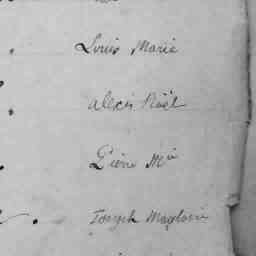 Louis Marie
alexis Noël
Pierre Mie
Joseph Magloire